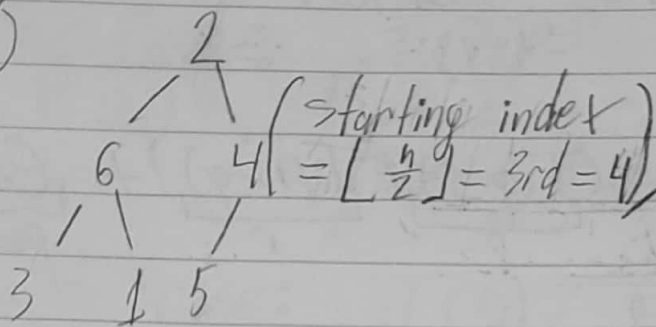 )
2
(starting index
6 4 = ⌊n/2⌋ = 3rd = 4)
3 1 5